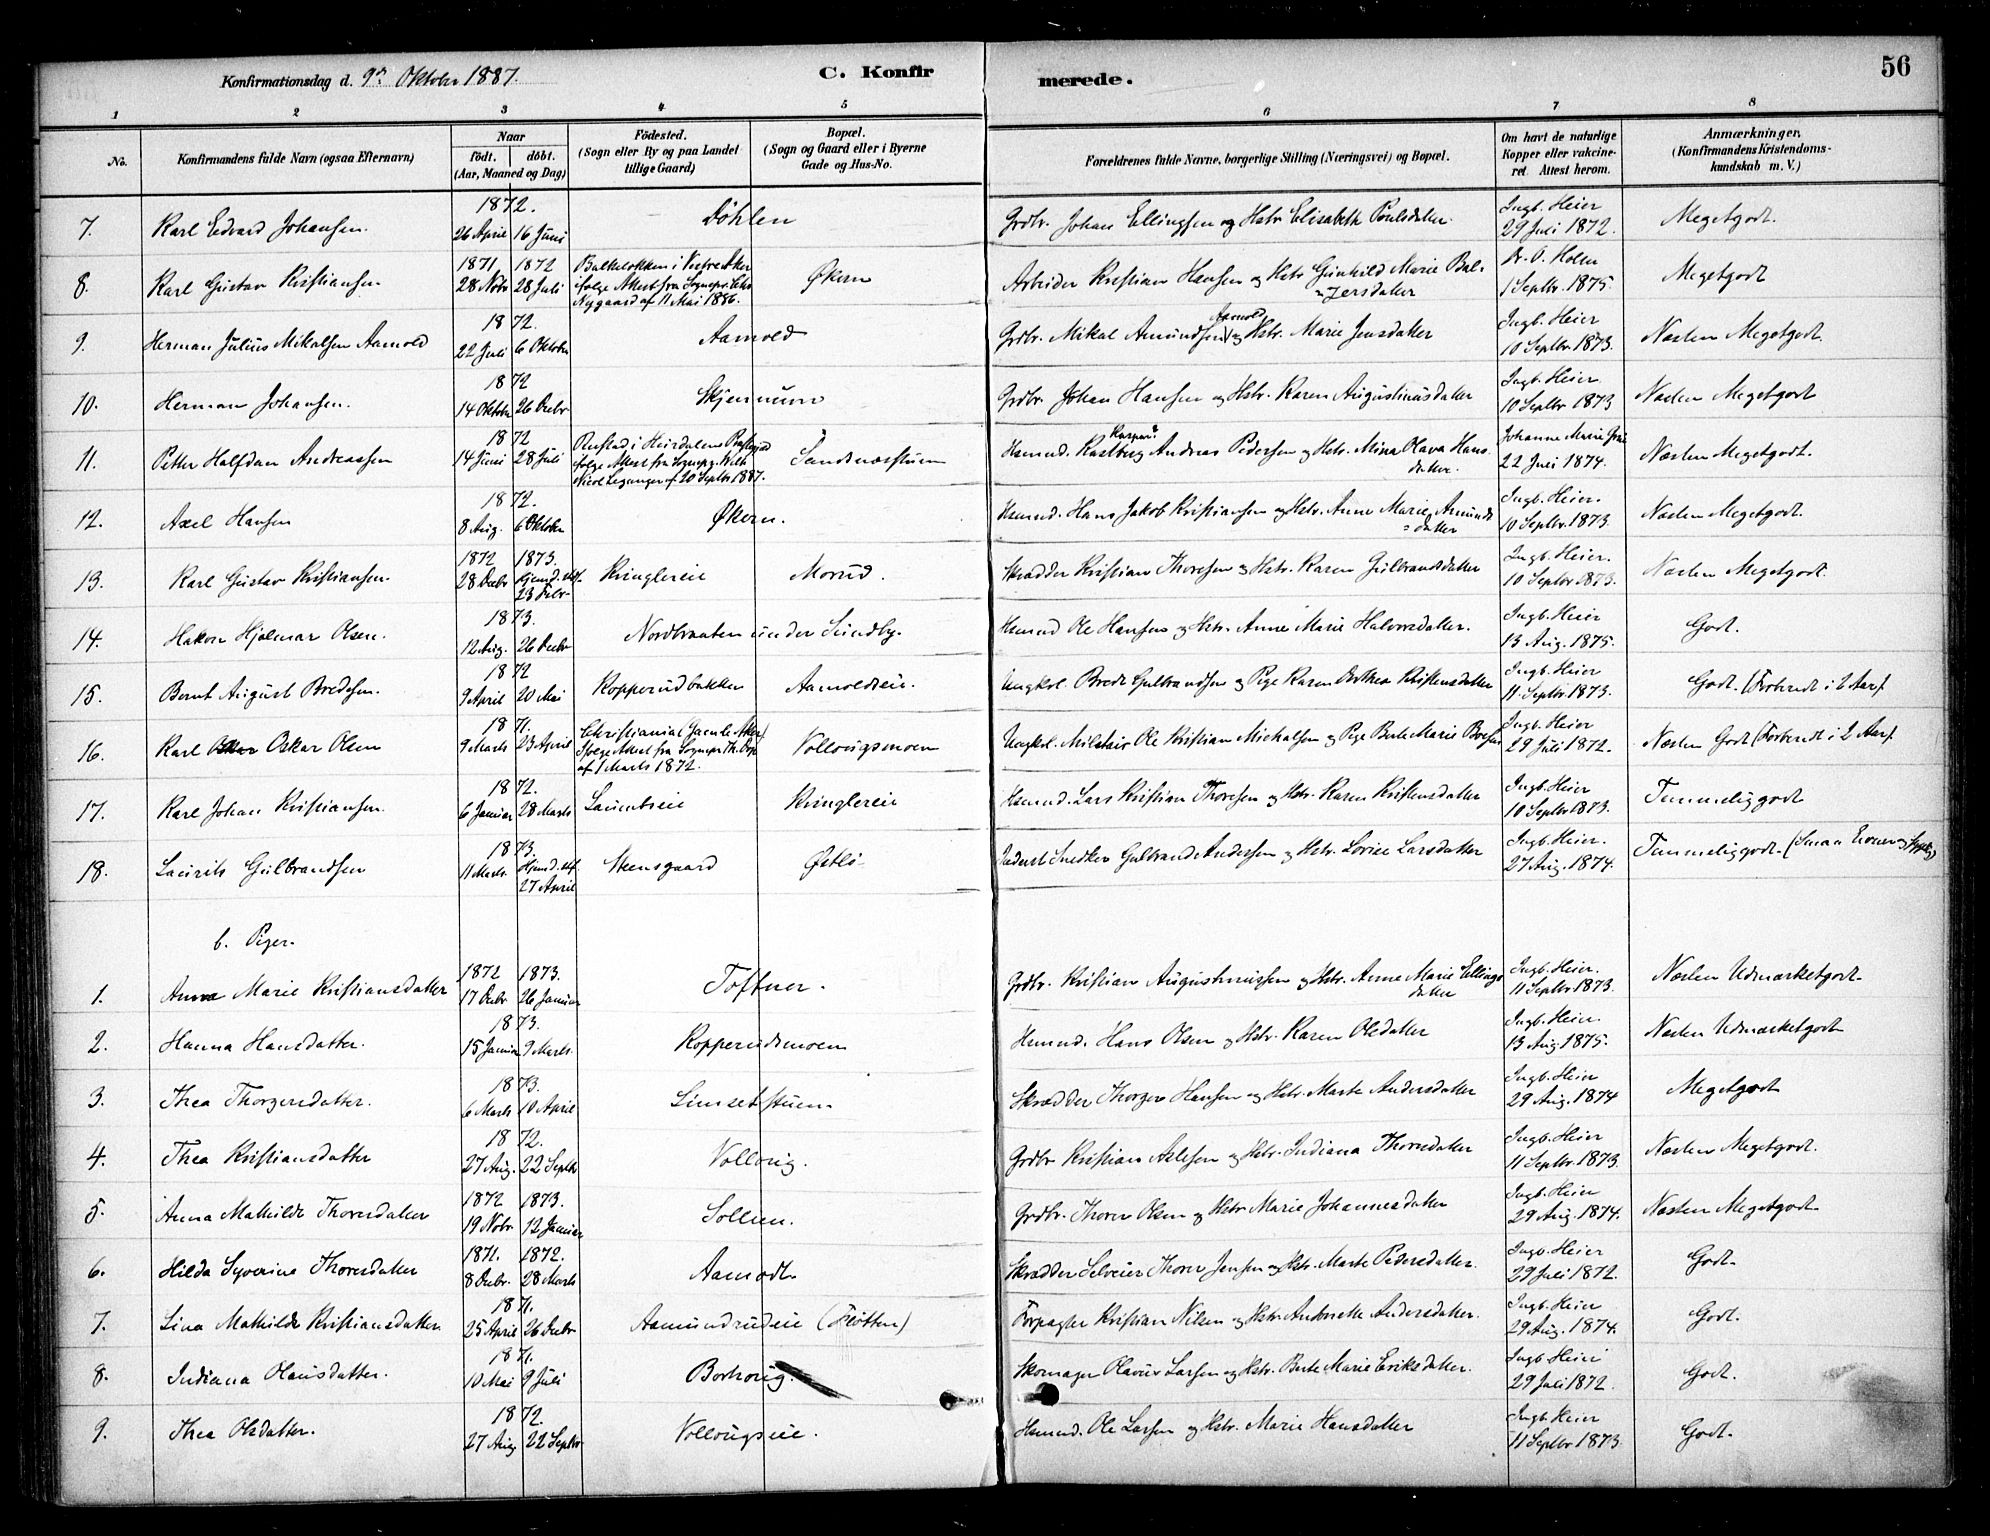 Konfirmationsdag d. 9de Oktober 1887.
C. Konfir
merede.
56
1 2 3 4 5 6 7 8
No.
Konfirmandens fulde Navn (ogsaa Efternavn)
Naar
födt. döbt.
(Aar, Maaned og Dag)
Födested.
(Sogn eller By og paa Landet
tillige Gaard)
Bopæl.
(Sogn og Gaard eller i Byerne
Gade og Hus-No.
Forældrenes fulde Navne, borgerlige Stilling (Næringsvei) og Bopæl.
Om havt de naturlige
Kopper eller vakcine-
ret. Attest herom.
Anmærkninger.
(Konfirmandens Kristendoms-
kundskab m. V.)
7. Karl Edvard Johansen. 1872. 26 April 16 Juni Döhlen Grdbr. Johan Ellingsen og Hstr. Elisabeth Poulsdatter. Ingb. Heier 29 Juli 1872. Megetgodt.
8. Karl Gustav Kristiansen 1871 28 Novbr 1872 28 Juli Balkeløkken i Vestre Aker
ifølge Attest fra Sognepr.
Nygaard af 11 Mai 1886. Økern Arbeider Kristian Hansen og Hstr Gunhild Marie Bal-
=zersdatter Dr. O. Holm 1 Septbr. 1875. Megetgodt
9. Herman Julius Mikalsen Aamold 1872. 22 Juli 6 Oktober Aamold Grdbr. Mikal Amundsen Aamold og Hstr. Marie Jensdatter Ingb. Heier 10 Septbr. 1873. Næsten Megetgodt.
10. Herman Johansen. 1872 14 Oktober 26 Decbr Skjennum Grdbr. Johan Hansen og Hstr. Karen Augustinusdatter Ingb. Heier 10 Septbr 1873 Næsten Megetgodt
11. Petter Halfdan Andreassen 1872 14 Juni 28 Juli i Heirdalens
ifølge Attest fra Sognepr.
af 20 Septbr 1887. Sandnæsstuen Hsmnd. Andreas Pedersen og Hstr. Mina Olava Hans-
datter. Johanne Marie 22 Juli 1874. Næsten Megetgodt.
12. Axel Hansen 1872. 8 Aug. 6 Oktober Økern. Hsmnd. Hans Jakob Kristiansen og Hstr. Anne Marie Amunds
=datter Ingb. Heier. 10 Septbr. 1873. Næsten Megetgodt.
13. Karl Gustav Kristiansen. 1872 28 Decbr 1873. Hjemd. stf. 23 Febr- Kringlereie Morud. Skrædder Kristian Thoresen og Hstr. Karen Gulbrandsdatter Ingb. Heier. 10 Septbr 1873. Næsten Megetgodt.
14. Hakon Hjalmar Olsen. 1873. 12 Aug. 26 Decbr Nordbraaten under Sundby. Hsmnd Ole Hansen og Hstr. Anne Marie Halvorsdatter. Ingb. Heier 13 Aug. 1875. Godt.
15. Bernt August Bredesen. 1872 9 April 20 Mai Kopperudbakken Aamoldseie. Ungkrl. Brede Gulbrandsen og Pige Karen Dorthea Kristensdatter Ingb. Heier 11 Septbr. 1873. Godt. (Forberedt i 2 Aar).
16. Karl Oskar Olsen 1871. 9 Marts 23 April Christiania (Gamle Aker)
ifølge Attest fra Sognepr. Th.
af 1 Marts 1872. Vollougsmoen Ungkrl. Militair Ole Kristian Mickalsen og Pige Berte Marie Ingb. Heier 29 Juli 1872. Næsten Godt (Forberedt i 2 Aar).
17. Karl Johan Kristiansen 1872. 6 Januar 28 Marts Kringlereie Hsmnd. Lars Kristian Thoresen og Hstr. Karen Kristensdatter Ingb. Heier 10 Septbr 1873. Temmelig godt
18. Laurits Gulbrandsen 1873. 11 Marts Hjemd. stf. 27 April Steensgaard Østli Inderst Snedker Gulbrand Andersen og Hstr. Lovise Larsdatter Ingb. Heier. 27 Aug. 1874. Temmelig godt. (Smaa Evner
b. Piger.
1. Anna Marie Kristiansdatter 1872 17 Decbr 1873. 26 Januar Toftner. Grdbr. Kristian Augustinussen og Hstr. Anne Marie Ellings
datter Ingb. Heier. 11 Septbr. 1873. Næsten Udmærketgodt.
2. Hanna Hansdatter. 1873. 15 Januar 9 Marts. Kopperudsmoen Hsmnd. Hans Olsen og Hstr. Karen Olsdatter Ingb. Heier. 13 Aug. 1875. Næsten Udmærketgodt
3. Thea Thorgersdatter. 1873. 6 Marts 10 April Limsetstuen. Skrædder Thorger Hansen og Hstr. Marte Andersdatter Ingb. Heier 29 Aug. 1874 Megetgodt
4. Thea Kristiansdatter 1872. 27 Aug. 22 Septbr Volloug. Grdbr Kristian Axlesen og Hstr. Indiana Thoresdatter Ingb. Heier 11 Septbr. 1873. Næsten Megetgodt.
5. Anna Mathilde Thoresdatter 1872 19 Nobr. 1873. 12 Januar Sollien. Grdbr. Thorer Olsen og Hstr Marie Johannesdatter Ingb. Heier 29 Aug. 1874. Næsten Megetgodt.
6. Hilda Syverine Thoresdatter 1871. 8 Decbr. 1872. 28 Marts Aamodt. Skrædder Selveier Thorer Jensen og Hstr. Marte Pedersdatter. Ingb. Heier 29 Juli 1872. Godt.
7. Lina Mathilde Kristiansdatter. 1871. 25 April 26 Decbr Aamundrudeie (Fløtten) Forpagter Kristian Nilsen og Hstr. Andrette Andersdatter. Ingb. Heier 29 Aug. 1874. Godt.
8. Indiana Olausdatter. 1871. 10 Mai 9 Juli Borhoug. Skomager Olavus Larsen og Hstr. Berte Marie Eriksdatter. Ingb Heier 29 Juli 1872. Godt.
9. Thea Olsdatter. 1872. 27 Aug 22 Septbr Vollougseie. Hsmnd. Ole Larsen og Hstr. Marie Hansdatter Ingb. Heier 11 Septbr 1873. Godt.